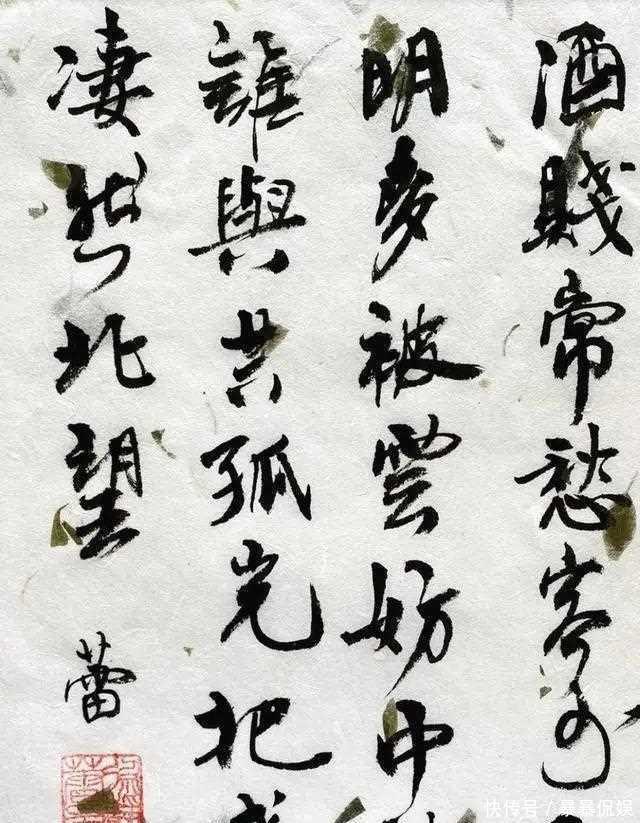 酒賤常愁客少
明多被雲妨中
誰與共孤光把
凄然北望
蕾
快传号/暴暴侃娱